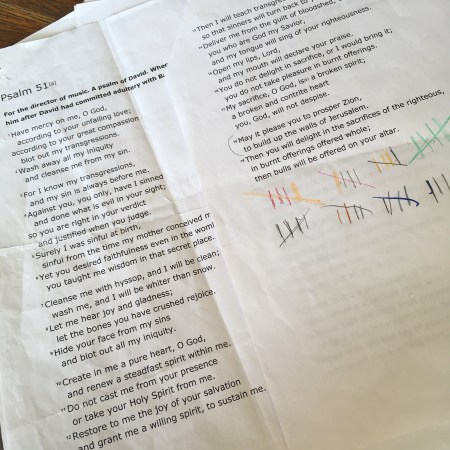 Psalm 51[a]
For the director of music. A psalm of David. When
him after David had committed adultery with
1Have mercy on me, O God,
according to your unfailing love;
according to your great compassion
blot out my transgressions.
2Wash away all my iniquity
and cleanse me from my sin.
3For I know my transgressions,
and my sin is always before me.
4Against you, you only, have I sinned
and done what is evil in your sight;
so you are right in your verdict
and justified when you judge.
5Surely I was sinful at birth,
sinful from the time my mother conceived
6Yet you desired faithfulness even in the
you taught me wisdom in that secret place.
7Cleanse me with hyssop, and I will be clean;
wash me, and I will be whiter than snow.
8Let me hear joy and gladness;
let the bones you have crushed rejoice.
9Hide your face from my sins
and blot out all my iniquity.
10Create in me a pure heart, O God,
and renew a steadfast spirit within me.
11Do not cast me from your presence
or take your Holy Spirit from me.
12Restore to me the joy of your salvation
and grant me a willing spirit, to sustain me.
13Then I will teach
so that sinners will turn back to
14Deliver me from the guilt of bloodshed,
you who are God my Savior,
and my tongue will sing of your righteousness.
15Open my lips, Lord,
and my mouth will declare your praise.
16You do not delight in sacrifice, or I would bring it;
you do not take pleasure in burnt offerings.
17My sacrifice, O God, is[b] a broken spirit;
a broken and contrite heart
you, God, will not despise.
18May it please you to prosper Zion,
to build up the walls of Jerusalem.
19Then you will delight in the sacrifices of the righteous,
in burnt offerings offered whole;
then bulls will be offered on your altar.